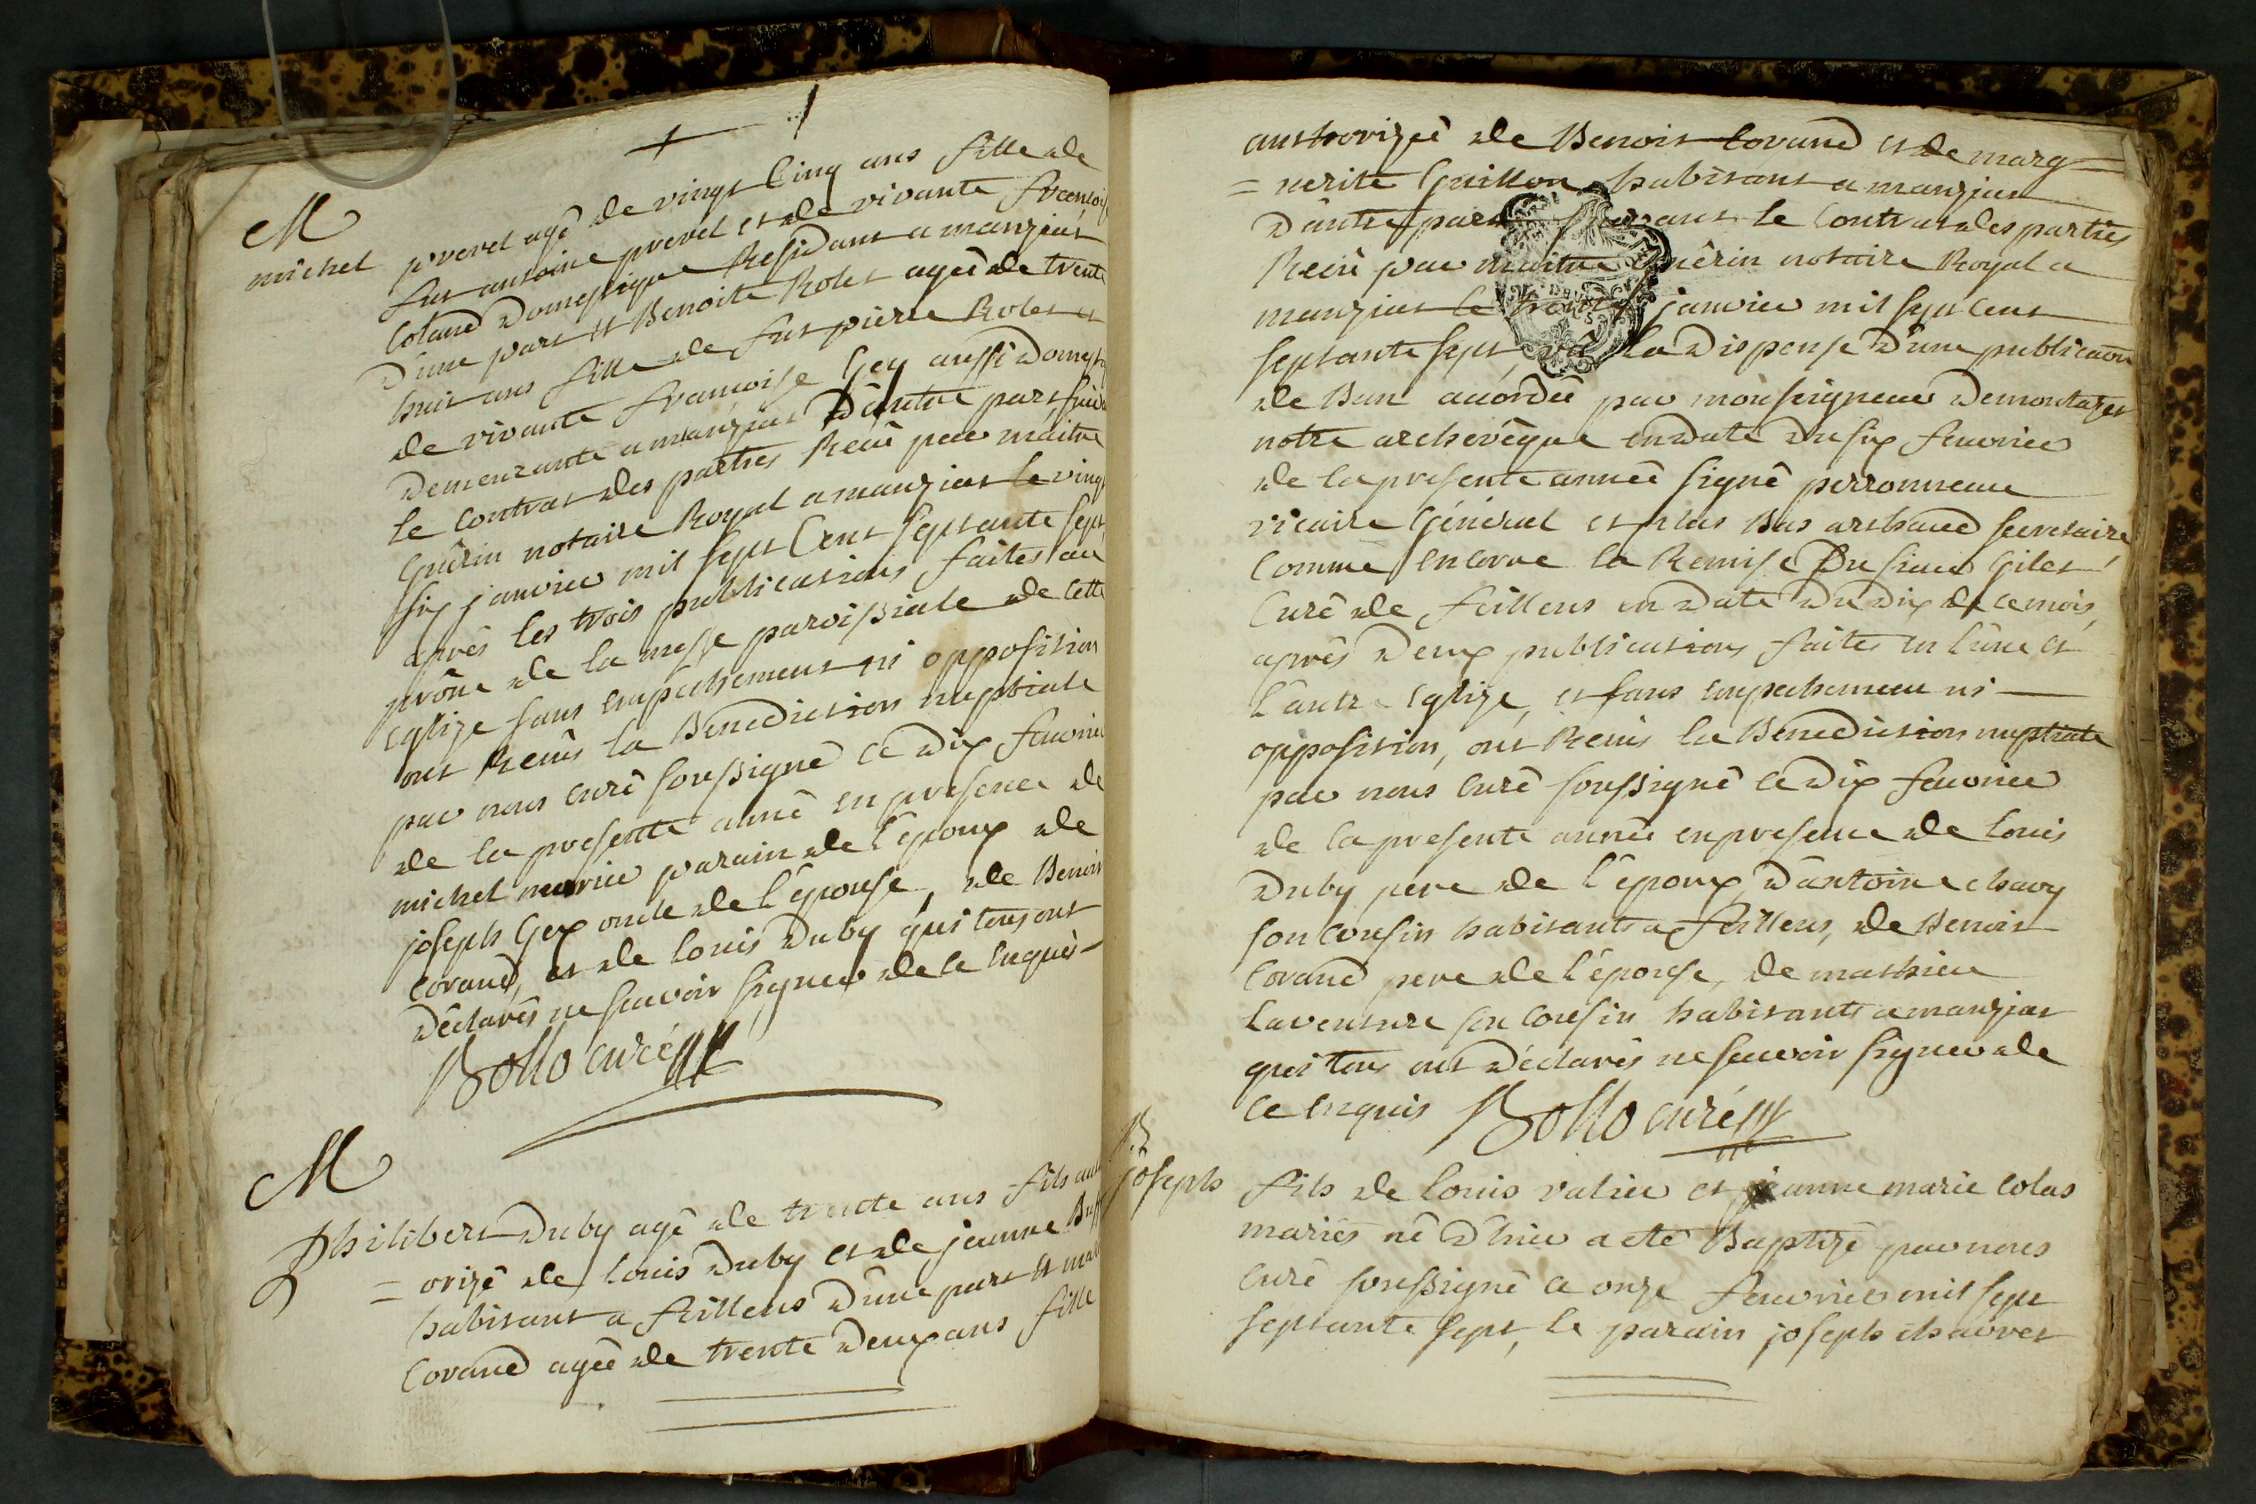 M
michel prevel agê de vingt Cinq ans fille de
fut antoine prevel et de vivante francoise
Coland Domestique Residant a manziat
d'une part et Benoite Rolet ageê de trente
huit ans fille de fut pierre Rolet et
de vivante francoise Gey aussi Domest
Demeurante a manziat D'autre part, suiv
le contrat des parties Recû par maitre
Guêrin notaire Royal a manziat le vingt
six janvier mil sept Cent septante sept,
après les trois publications faites au
prône de la messe paroissiale de cette
eglize sans empechement ni opposition
ont Recûs la Benediction nuptiale
par nous curê soussignê ce Dix fevrier
de la presente anneê en presence de
michel parain de l'êpoux de
joseph Gex oncle de l'êpouse, de Benoit
Corand, et de Louis Duby qui tous ont
Dêclarês ne scavoir signer de ce enquis =
Bollo curé
M
Philibert Duby agê de trente ans fils aut
= orizê de Louis Duby et de jeanne
habitant a feillens D'une part et
Corand ageê de trente Deux ans fille
authorizeê de Benoit Corand et de marg =
= uerite Guillon habitant a manziat
D'autre part suivant le Contrat des parties
Recû par maitre Guêrin notaire Royal a
manziat le janvier mil sept cent
septante sept, vû la Dispense D'une publication
de Ban acordeê par monseigneur Demontazet
notre archevêque en Date Du six fevrier
de la presente anneê signê perronneau
vicaire Gênêral et plus Bas arthaud secretaire
Comme encorre la Remise Du sieur Gilet
Curê de feillens en Date Du Dix de ce mois,
après Deux publications faites en l'une et
l'autre Eglize, et sans empechement ni
opposition, ont Recus la Benediction nuptiale
par nous curê soussignê ce Dix fevrier
de la presente anneê en presence de Louis
Duby pere de l'êpoux, D'antoine chavy
son cousin habitants a feillens, de Benoit
Corand pere de l'êpouse, de mathieu
Laventure son cousin habitants a manziat
qui tous ont Dêclarês ne scavoir signer de
ce enquis Bollo curé
B
joseph fils de Louis valier et jeanne marie colas
mariês nê D'hier a etê Baptizê par nous
curê soussignê ce onze fevrier mil sept
septante sept, le parain joseph chavvet